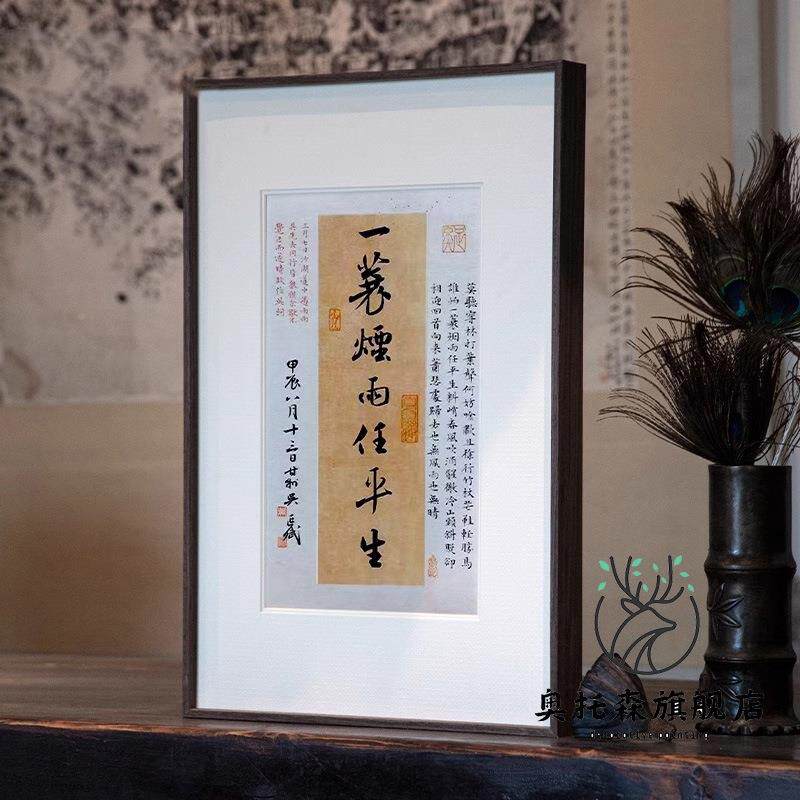 莫聽穿林打葉聲何妨吟歗且徐行竹杖芒鞋輕勝馬
誰怕一蓑烟雨任平生料峭春風吹酒醒微冷山頭斜照卻
相迎回首向來蕭瑟處歸去也無風雨也無晴
一蓑煙雨任平生
三月七日沙湖道中遇雨雨
具先去同行皆狼狽余獨不
覺已而遂晴故作此詞
甲辰八月十三日
奥托森旗舰店